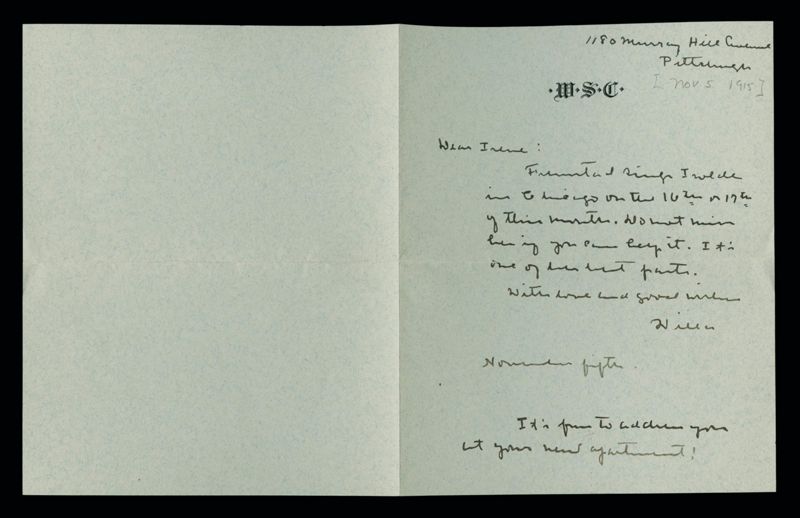 1180 Murray Hill Avenue
Pittsburgh
[Nov 5 1915]
·W·S·C·
Dear Irene:
Fremstad sings Isolde
in Chicago on the 16th or 17th
of this month. Do not miss
her if you can help it. It's
one of her best parts.
With love and good wishes
Willa
November fifth.
It's fun to address you
at your new apartment!